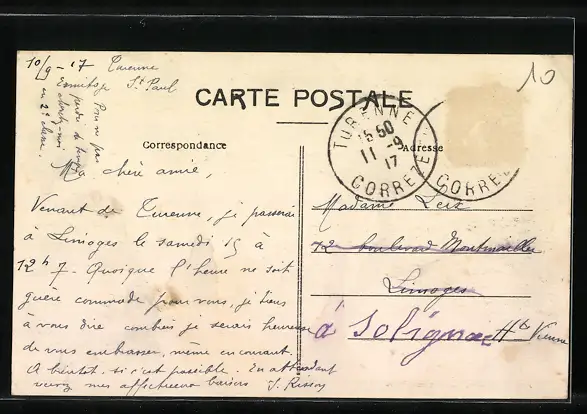 10/9-17 Turenne
Ermitage St Paul
Pour ne pas
perdre de temps
cherchez-moi
en 2e classe.
10
CARTE POSTALE
Correspondance
Adresse
TURENNE
15 50
11 -9
17
CORRÈZE
CORRÈZE
Ma chère amie,
Venant de Turenne, je passerai
à Limoges le samedi 15 à
12h 7. Quoique l'heure ne soit
guère commode pour vous, je tiens
à vous dire combien je serais heureuse
de vous embrasser, même en courant.
A bientôt, si c'est possible. En attendant
recevez mes affectueux baisers J. Risson
Madame
72 boulevard Montmailler
Limoges
à Solignac Hte Vienne